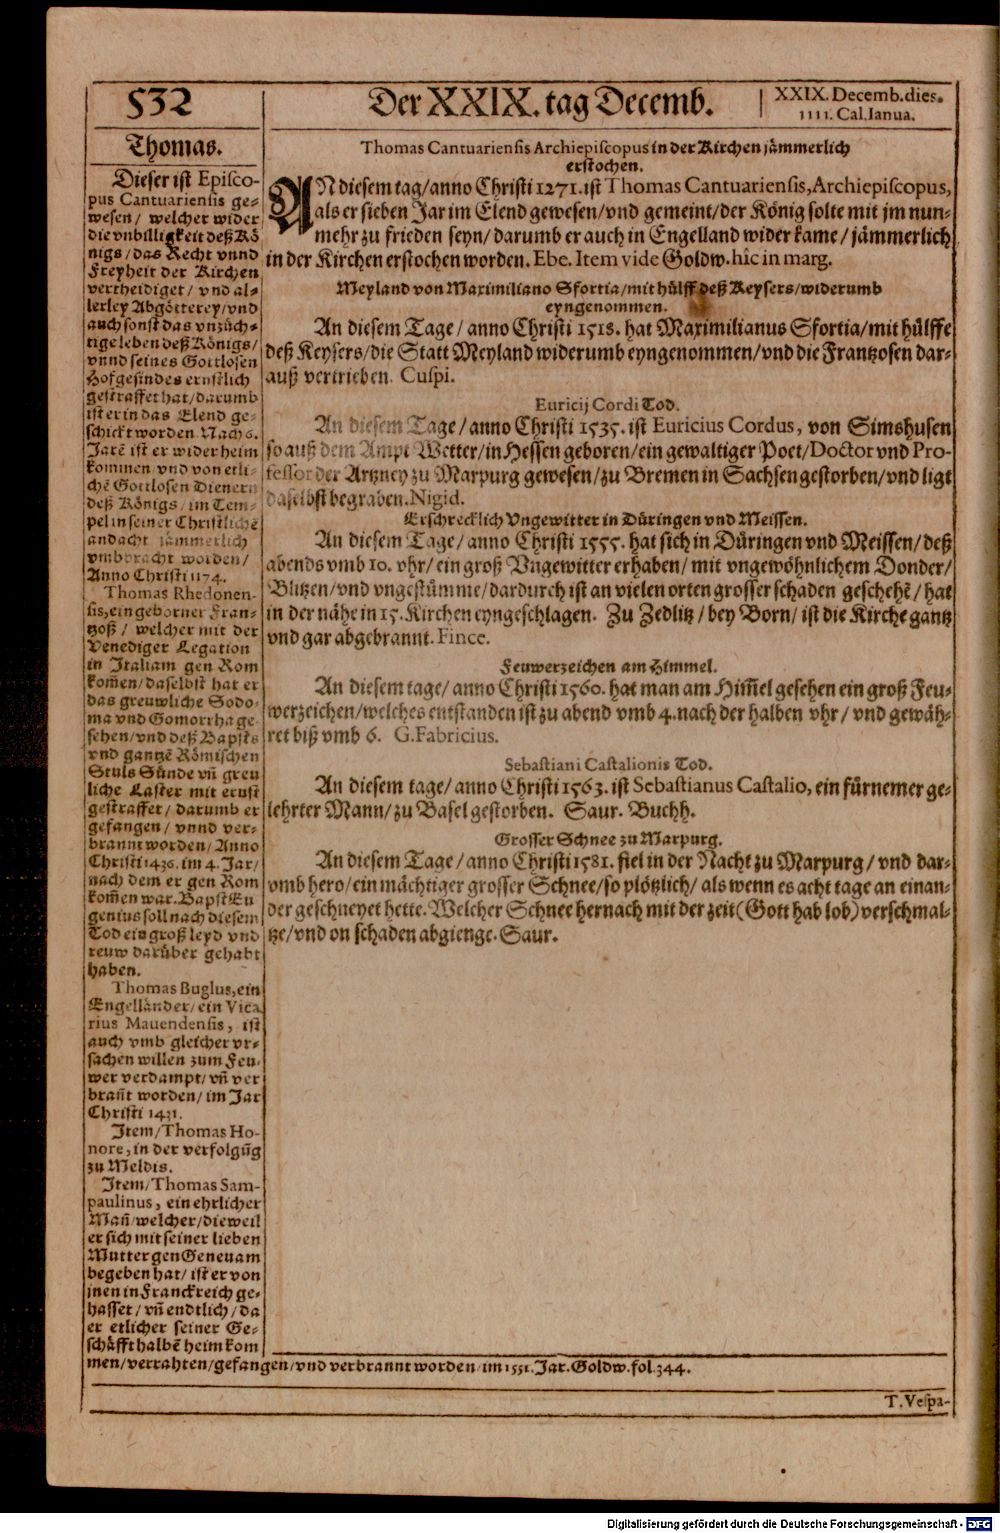 532
Der XXIX. tag Decemb.
XXIX. Decemb. dies.
1111. Cal. Ianua.
Thomas.
Dieser ist Episco-
pus Cantuariensis ge-
wesen / welcher wider
die vnbilligkeit deß Kö
nigs / das Recht vnnd
Freyheit der Kirchen
vertheidiget / vnd al-
lerley Abgötterey / vnd
auch sonst das vnzüch-
tige leben deß Königs /
vnnd seines Gottlosen
Hofgesindes ernstlich
gestraffet hat / darumb
ist er in das Elend ge-
schickt worden. Nach 6.
Jarē ist er wider heim
kommen / vnd von etli-
chē Gottlosen Dienern
deß Königs / im Tem-
pel in seiner Christlichē
andacht jämmerlich
vmbbracht worden /
Anno Christi 1174.
Thomas Rhedonen-
sis, ein geborner Fran-
tzoß / welcher mit der
Venediger Legation
in Italiam gen Rom
kom̄en / daselbst hat er
das greuwliche Sodo-
ma vnd Gomorrha ge-
sehen / vnd deß Bapsts
vnd gantzē Römischen
Stuls Sünde vn̄ greu
liche Laster mit ernst
gestraffet / darumb er
gefangen / vnnd ver-
brannt worden / Anno
Christi 1436. im 4. Jar /
nach dem er gen Rom
kom̄en war. Bapst Eu
genius soll nach diesem
Tod ein groß leyd vnd
reuw darüber gehabt
haben.
Thomas Buglus, ein
Engelländer / ein Vica
rius Mauendensis, ist
auch vmb gleicher vr-
sachen willen zum Feu-
wer verdampt / vn̄ ver
bran̄t worden / im Jar
Christi 1431.
Item / Thomas Ho-
nore, in der verfolgūg
zu Meldis.
Item / Thomas Sam-
paulinus, ein ehrlicher
Man̄ / welcher / dieweil
er sich mit seiner lieben
Mutter gen Geneuam
begeben hat / ist er von
jnen in Franckreich ge-
hasset / vn̄ endtlich / da
er etlicher seiner Ge-
schäfft halbē heim kom
men / verrahten / gefangen / vnd verbrannt worden / im 1551. Jar. Goldw. fol. 344.
Thomas Cantuariensis Archiepiscopus in der Kirchen jämmerlich
erstochen.
AN diesem tag / anno Christi 1271. ist Thomas Cantuariensis, Archiepiscopus,
als er sieben Jar im Elend gewesen / vnd gemeint / der König solte mit jm nun-
mehr zu frieden seyn / darumb er auch in Engelland wider kame / jämmerlich
in der Kirchen erstochen worden. Ebe. Item vide Goldw. hîc in marg.
Meyland von Maximiliano Sfortia / mit hülff deß Keysers / widerumb
eyngenommen.
An diesem Tage / anno Christi 1518. hat Maximilianus Sfortia / mit hülffe
deß Keysers / die Statt Meyland widerumb eyngenommen / vnd die Frantzosen dar-
auß vertrieben. Cuspi.
Euricij Cordi Tod.
An diesem Tage / anno Christi 1535. ist Euricius Cordus, von Simshusen
so auß dem Ampt Wetter / in Hessen geboren / ein gewaltiger Poet / Doctor vnd Pro-
fessor der Artzney zu Marpurg gewesen / zu Bremen in Sachsen gestorben / vnd ligt
daselbst begraben. Nigid.
Erschrecklich Vngewitter in Düringen vnd Meissen.
An diesem Tage / anno Christi 1555. hat sich in Düringen vnd Meissen / deß
abends vmb 10. vhr / ein groß Vngewitter erhaben / mit vngewöhnlichem Donder /
Blitzen / vnd vngestümme / dardurch ist an vielen orten grosser schaden geschehē / hat
in der nähe in 15. Kirchen eyngeschlagen. Zu Zedlitz / bey Born / ist die Kirche gantz
vnd gar abgebrannt. Fince.
Feuwerzeichen am Himmel.
An diesem tage / anno Christi 1560. hat man am Him̄el gesehen ein groß Feu-
werzeichen / welches entstanden ist zu abend vmb 4. nach der halben vhr / vnd gewäh-
ret biß vmb 6. G. Fabricius.
Sebastiani Castalionis Tod.
An diesem tage / anno Christi 1563. ist Sebastianus Castalio, ein fürnemer ge-
lehrter Mann / zu Basel gestorben. Saur. Buchh.
Grosser Schnee zu Marpurg.
An diesem Tage / anno Christi 1581. fiel in der Nacht zu Marpurg / vnd dar-
vmb hero / ein mächtiger grosser Schnee / so plötzlich / als wenn es acht tage an einan-
der geschneyet hette. Welcher Schnee hernach mit der zeit (Gott hab lob) verschmal-
tze / vnd on schaden abgienge. Saur.
T. Vespa-
Digitalisierung gefördert durch die Deutsche Forschungsgemeinschaft - DFG